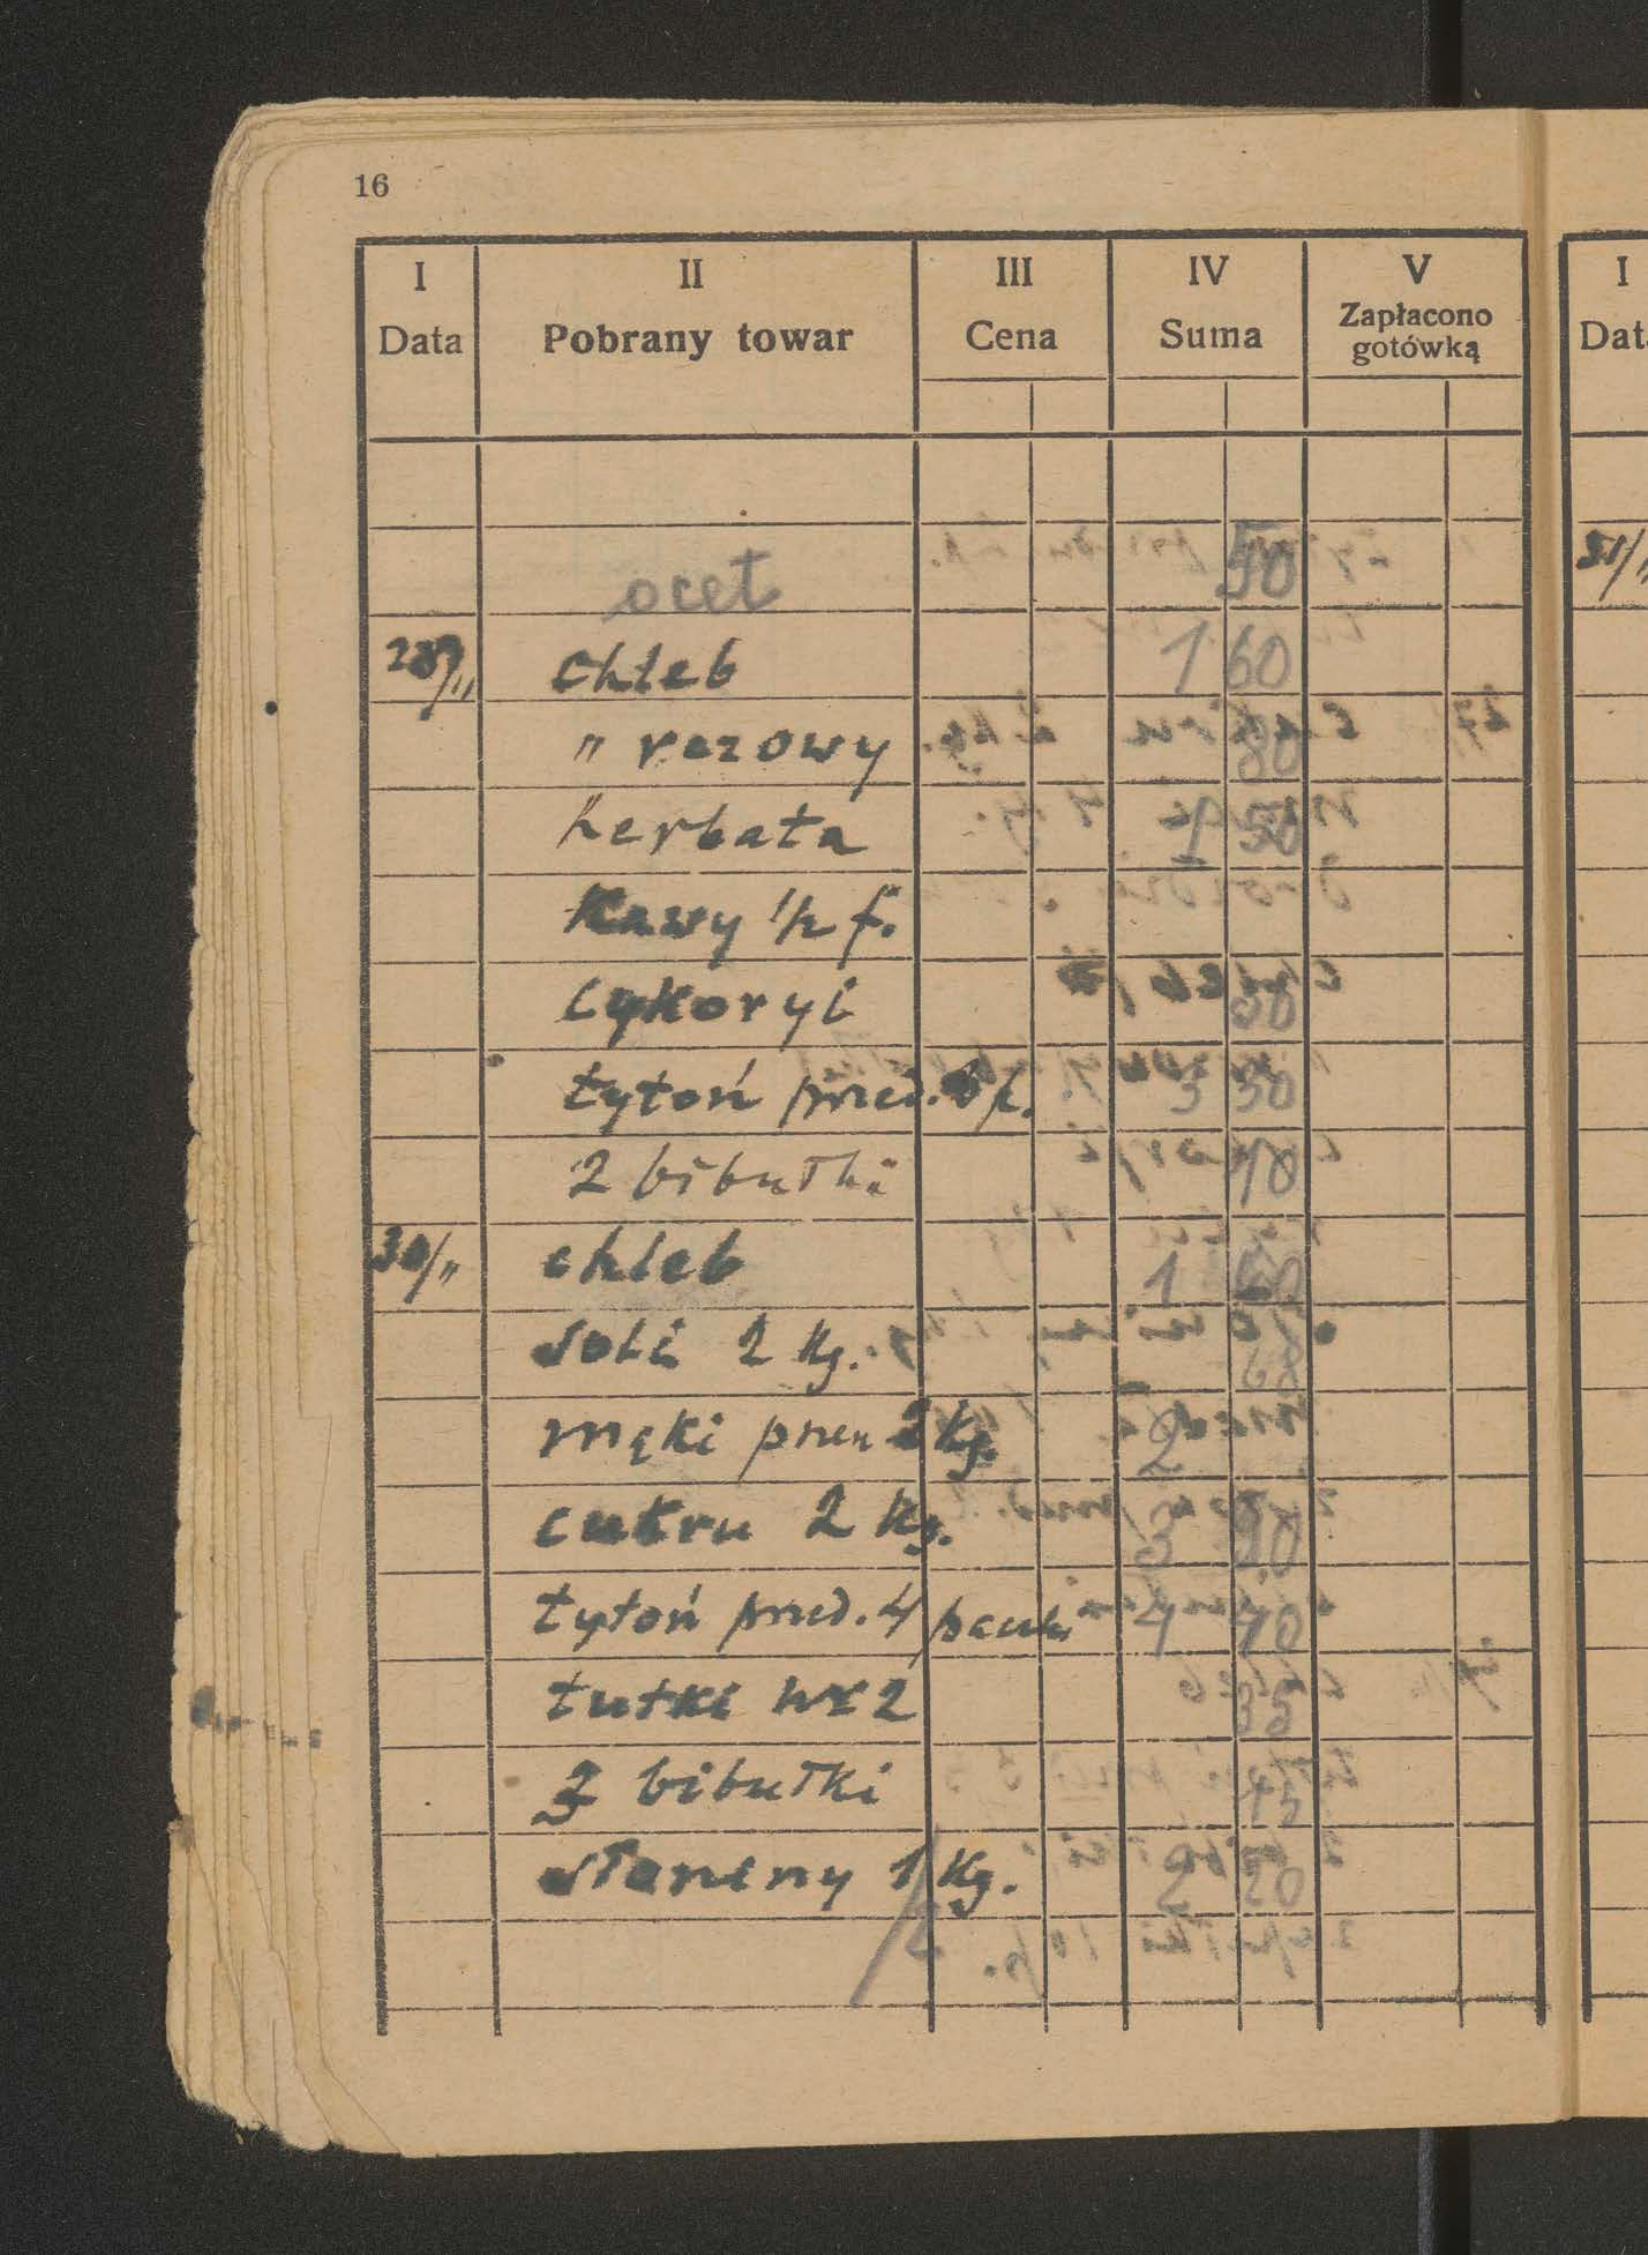 16
I II III IV V I
Data Pobrany towar Cena Suma Zapłacono gotówką Dat
ocet 50
chleb 1 60
" razowy 80
herbata 1 50
Kawy 1/2 f.
cykoryi 50
tytoń pned. p. 3 30
2 bibułki 10
30/" chleb 1 60
soli 2 Kg. 68
mąki pnen 2 Kg. 2
cukru 2 Kg. 3
tytoń pned. 4 paczki 4 40
tutki nr 2 35
3 bibułki 45
słoniny 1 Kg. 2 20